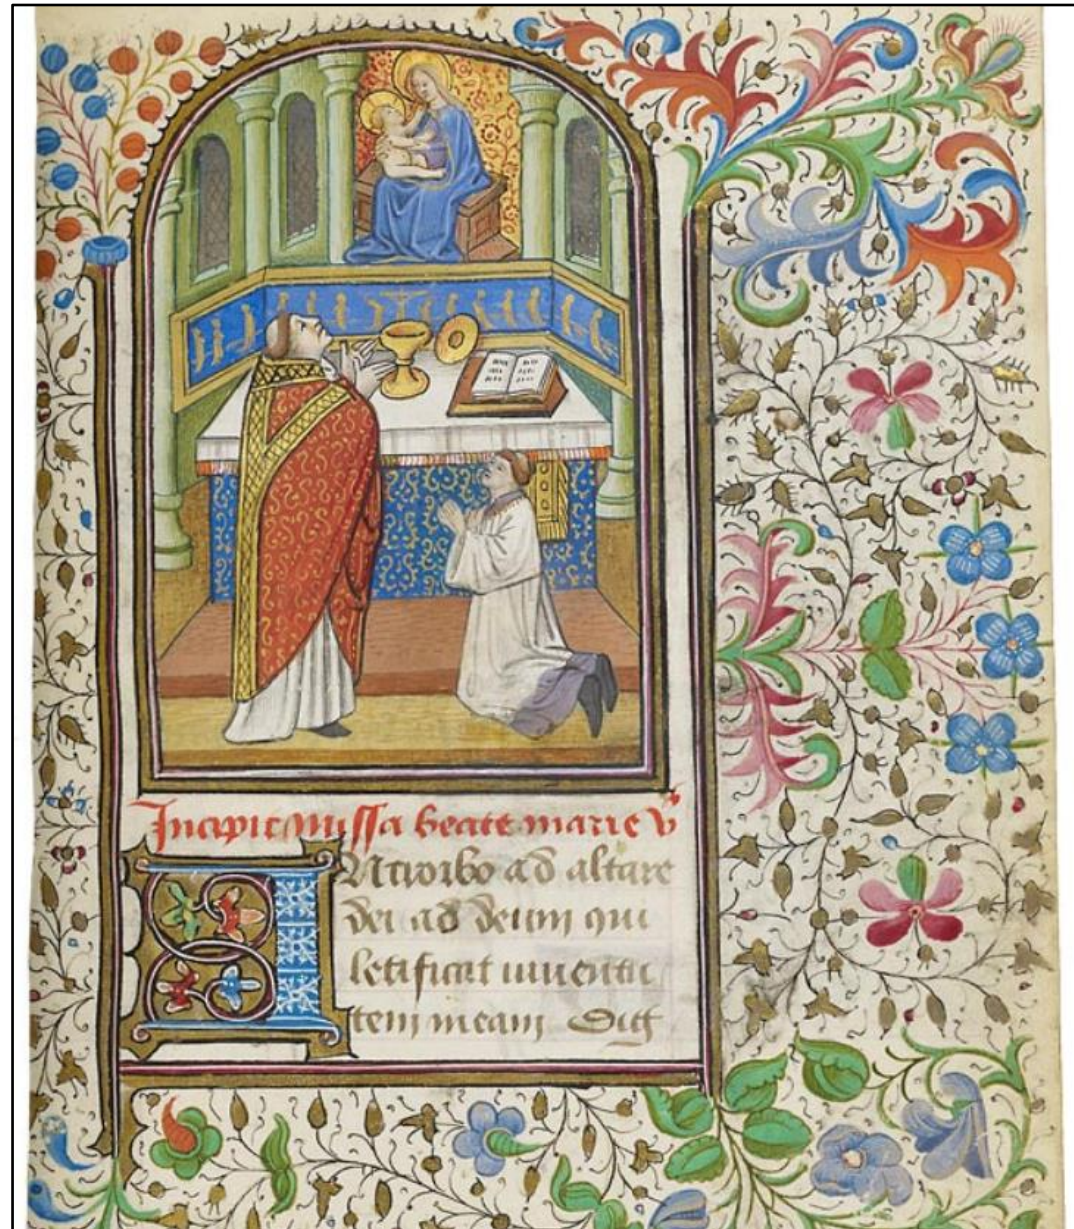 Incipit missa beate marie v
Introibo ad altare
dei ad deum qui
letificat iuuentu
tem meam